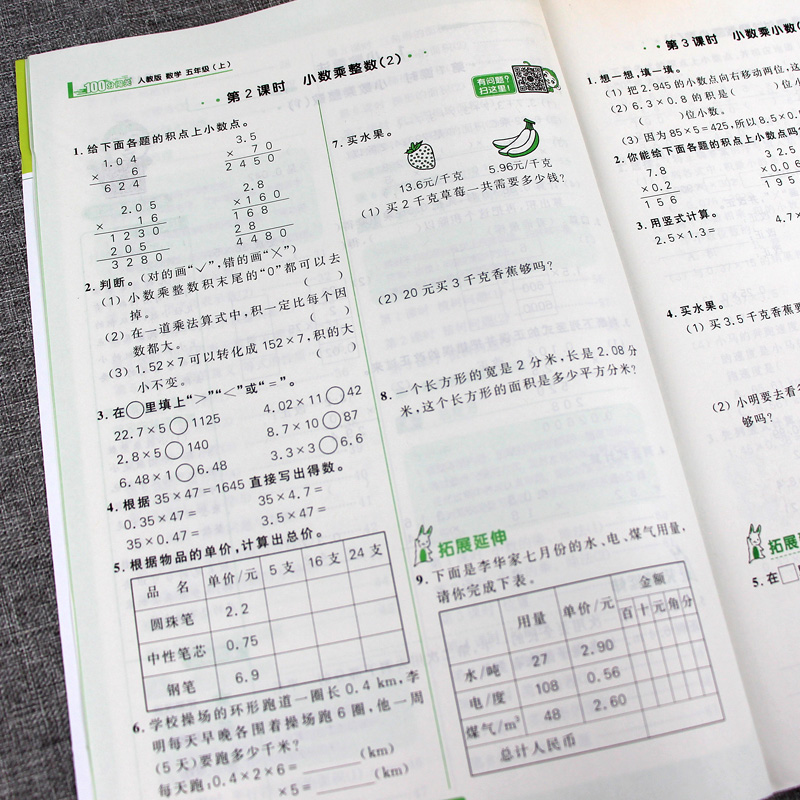 人教版 数学 五年级(上)
第2课时 小数乘整数(2)
有问题?
扫这里!
1. 给下面各题的积点上小数点。
1.04
× 6
624
3.5
× 70
2450
2.05
× 16
1230
205
3280
2.8
×160
168
28
4480
2. 判断。(对的画“✓”,错的画“×”)
(1) 小数乘整数积末尾的“0”都可以去
掉。 ( )
(2) 在一道乘法算式中,积一定比每个因
数都大。 ( )
(3) 1.52×7可以转化成152×7,积的大
小不变。 ( )
3. 在○里填上“>”“<”或“=”。
22.7×5○1125 4.02×11○42
2.8×5○140 8.7×10○87
6.48×1○6.48 3.3×3○6.6
4. 根据35×47=1645直接写出得数。
0.35×47= 35×4.7=
35×0.47= 3.5×47=
5. 根据物品的单价,计算出总价。
品 名 单价/元 5支 16支 24支
圆珠笔 2.2
中性笔芯 0.75
钢笔 6.9
6. 学校操场的环形跑道一圈长0.4 km,李
明每天早晚各围着操场跑6圈,他一周
(5天)要跑多少千米?
每天跑:0.4×2×6= (km)
×5= (km)
7. 买水果。
13.6元/千克 5.96元/千克
(1) 买2千克草莓一共需要多少钱?
(2) 20元买3千克香蕉够吗?
8. 一个长方形的宽是2分米,长是2.08分
米,这个长方形的面积是多少平方分米?
拓展延伸
9. 下面是李华家七月份的水、电、煤气用量,
请你完成下表。
用量 单价/元 金额
百 十 元 角 分
水/吨 27 2.90
电/度 108 0.56
煤气/m³ 48 2.60
总计人民币
第3课时 小数乘小数
1. 想一想,填一填。
(1) 把2.945的小数点向右移动两位,这
(2) 6.3×0.8的积是( )位小
( )位小数。
(3) 因为85×5=425,所以8.5×0.
2. 你能给下面各题的积点上小数点吗
7.8
×0.2
156
325
×0.06
195
3. 用竖式计算。
2.5×1.3= 4.7×
4. 买水果。
(1) 买3.5千克香蕉要
(2) 小明要去看
够吗?
拓展
5. 在□